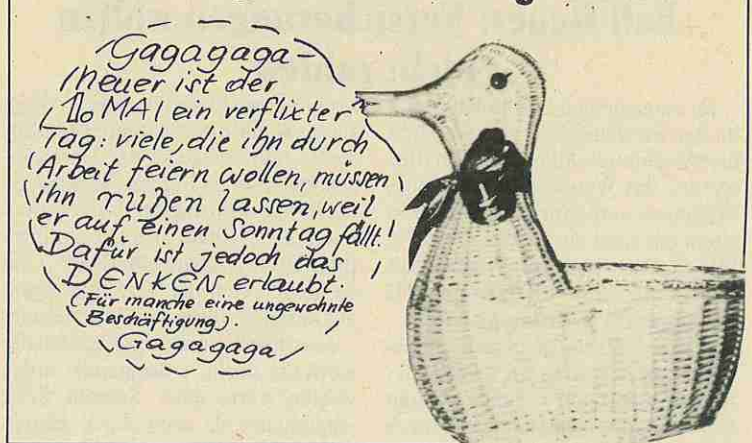 Gagagaga –
heuer ist der
1. MAI ein verflixter
Tag: viele, die ihn durch
Arbeit feiern wollen, müssen
ihn ruhen lassen, weil
er auf einen Sonntag fällt.
Dafür ist jedoch das
DENKEN erlaubt.
(Für manche eine ungewohnte
Beschäftigung).
Gagagaga